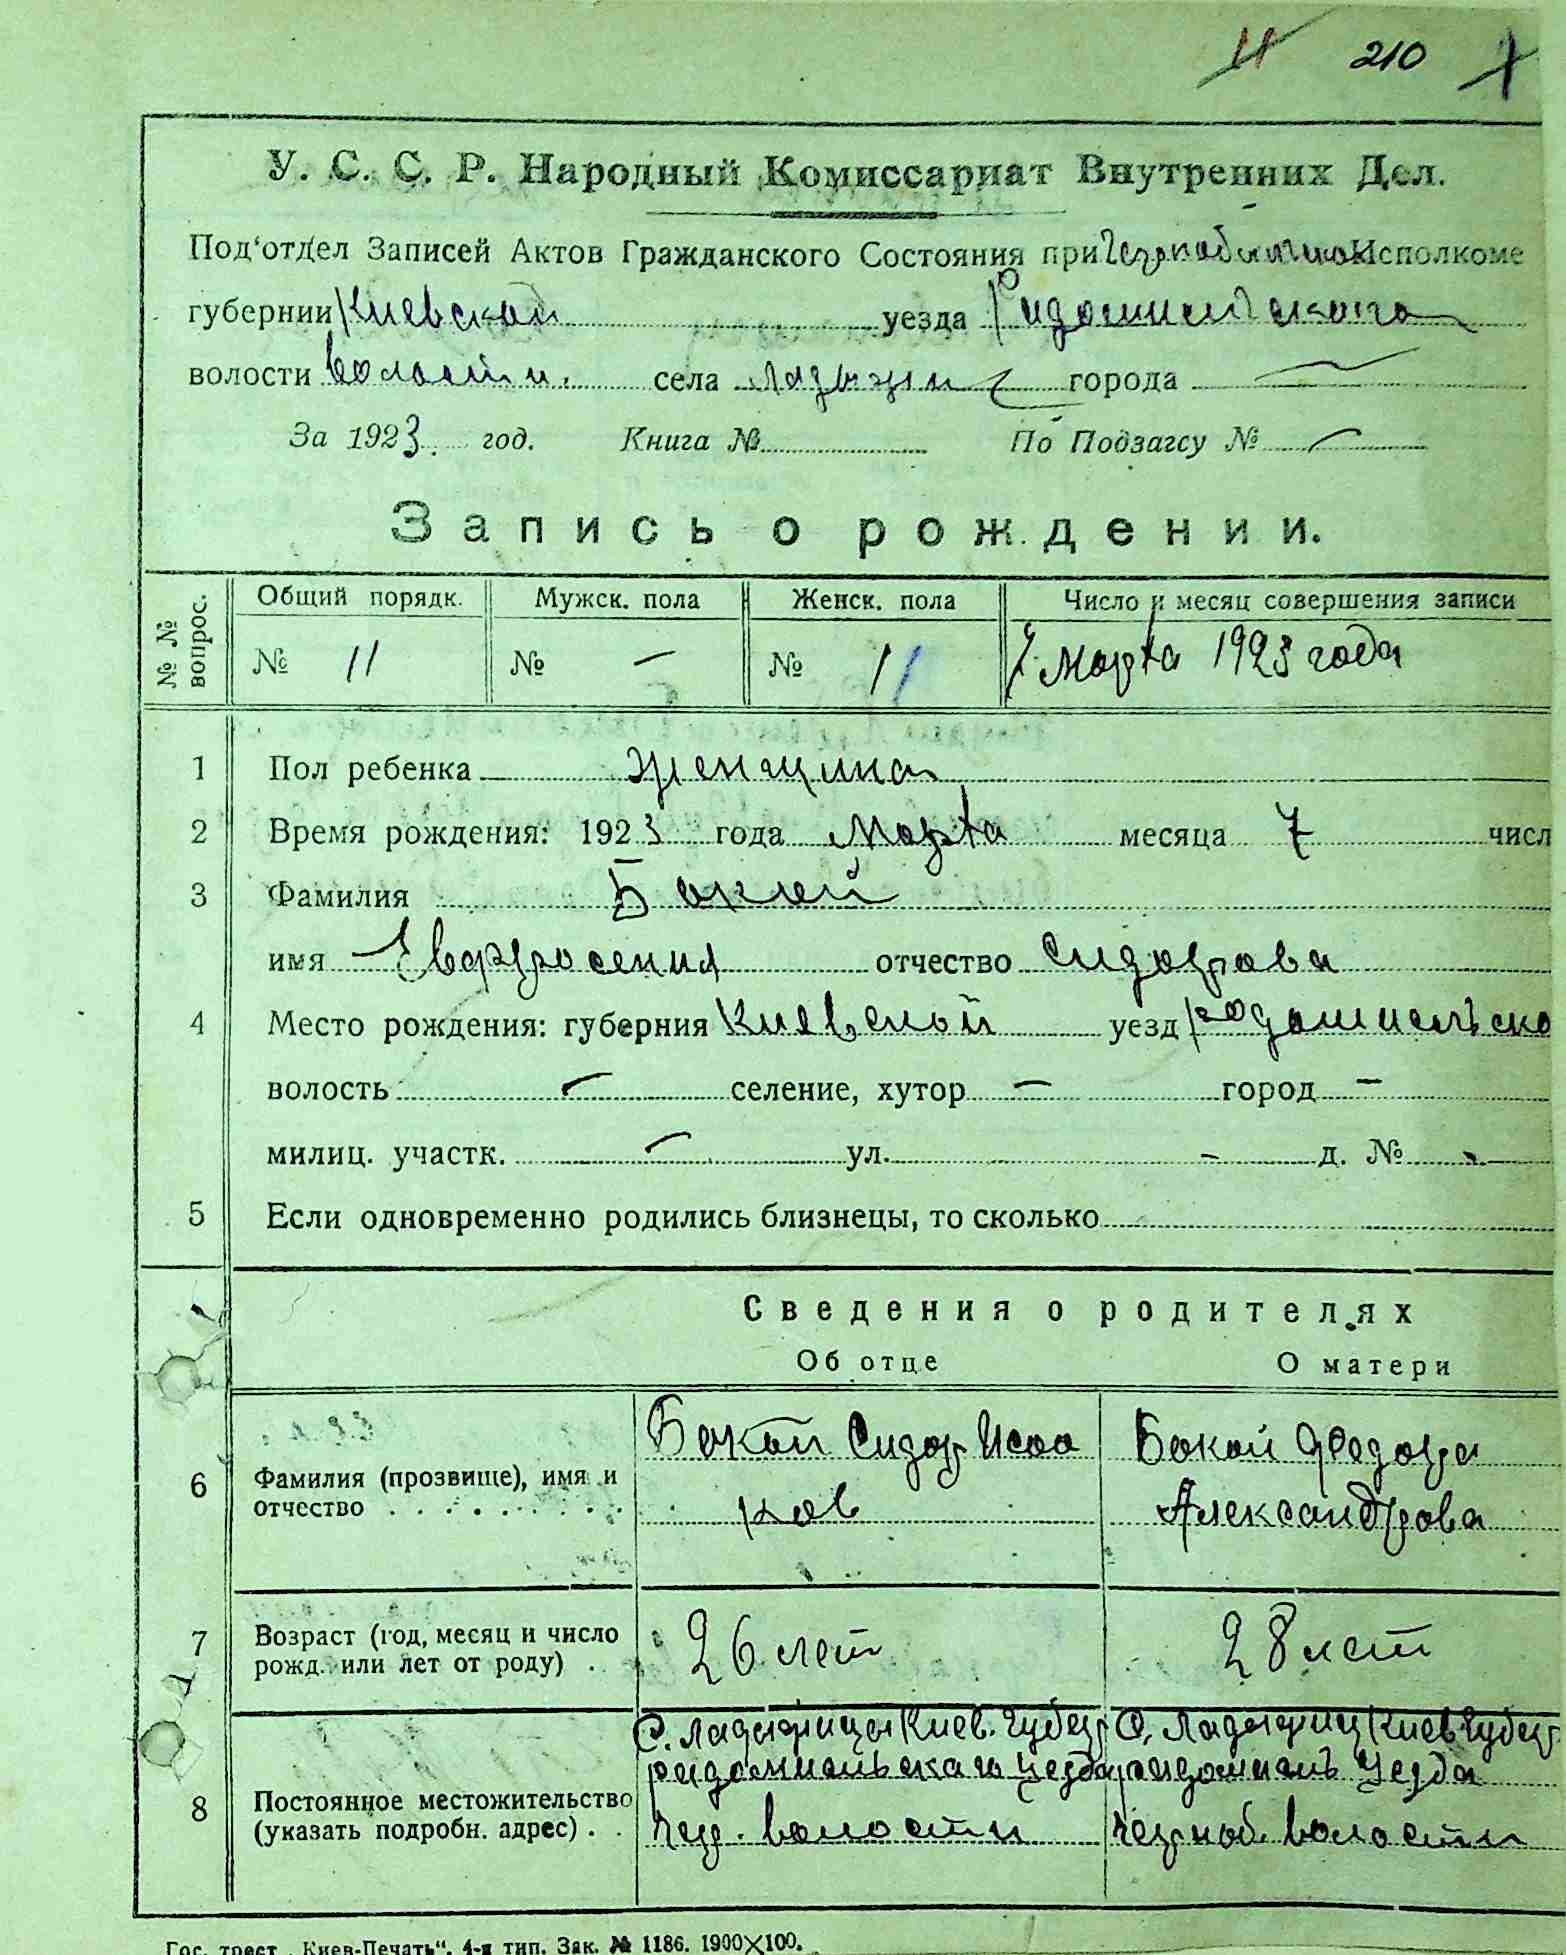 11 210
У. С. С. Р. Народный Комиссариат Внутренних Дел.
Под‘отдел Записей Актов Гражданского Состояния при Исполкоме
губернии Киевской уезда Радомисльского
волости волости. села города —
За 1923 год. Книга № По Подзагсу № —
Запись о рождении.
№ № вопрос. Общий порядк. Мужск. пола Женск. пола Число и месяц совершения записи
№ 11 № — № 11 7 Марта 1923 года
1 Пол ребенка женщина
2 Время рождения: 1923 года Марта месяца 7 числ
3 Фамилия Бокой
имя Евфросения отчество Сидорова
4 Место рождения: губерния Киевской уезд радомисльско
волость — селение, хутор — город —
милиц. участк. — ул. - д. № -
5 Если одновременно родились близнецы, то сколько
Сведения о родителях
Об отце О матери
6 Фамилия (прозвище), имя и отчество Бокой Сидор Исаа Бокой Федора
ков Александрова
7 Возраст (год, месяц и число рожд. или лет от роду) . 26 лет 28 лет
8 Постоянное местожительство (указать подробн. адрес) . . С. Ладыжицы Киев. губер С. Ладыжиц Киев губер
радомисльскаго уезда радомисль уезда
Чер. волости Черноб. волости
Гос. трест „Киев-Печать“. 4-я тип. Зак. № 1186. 1900×100.